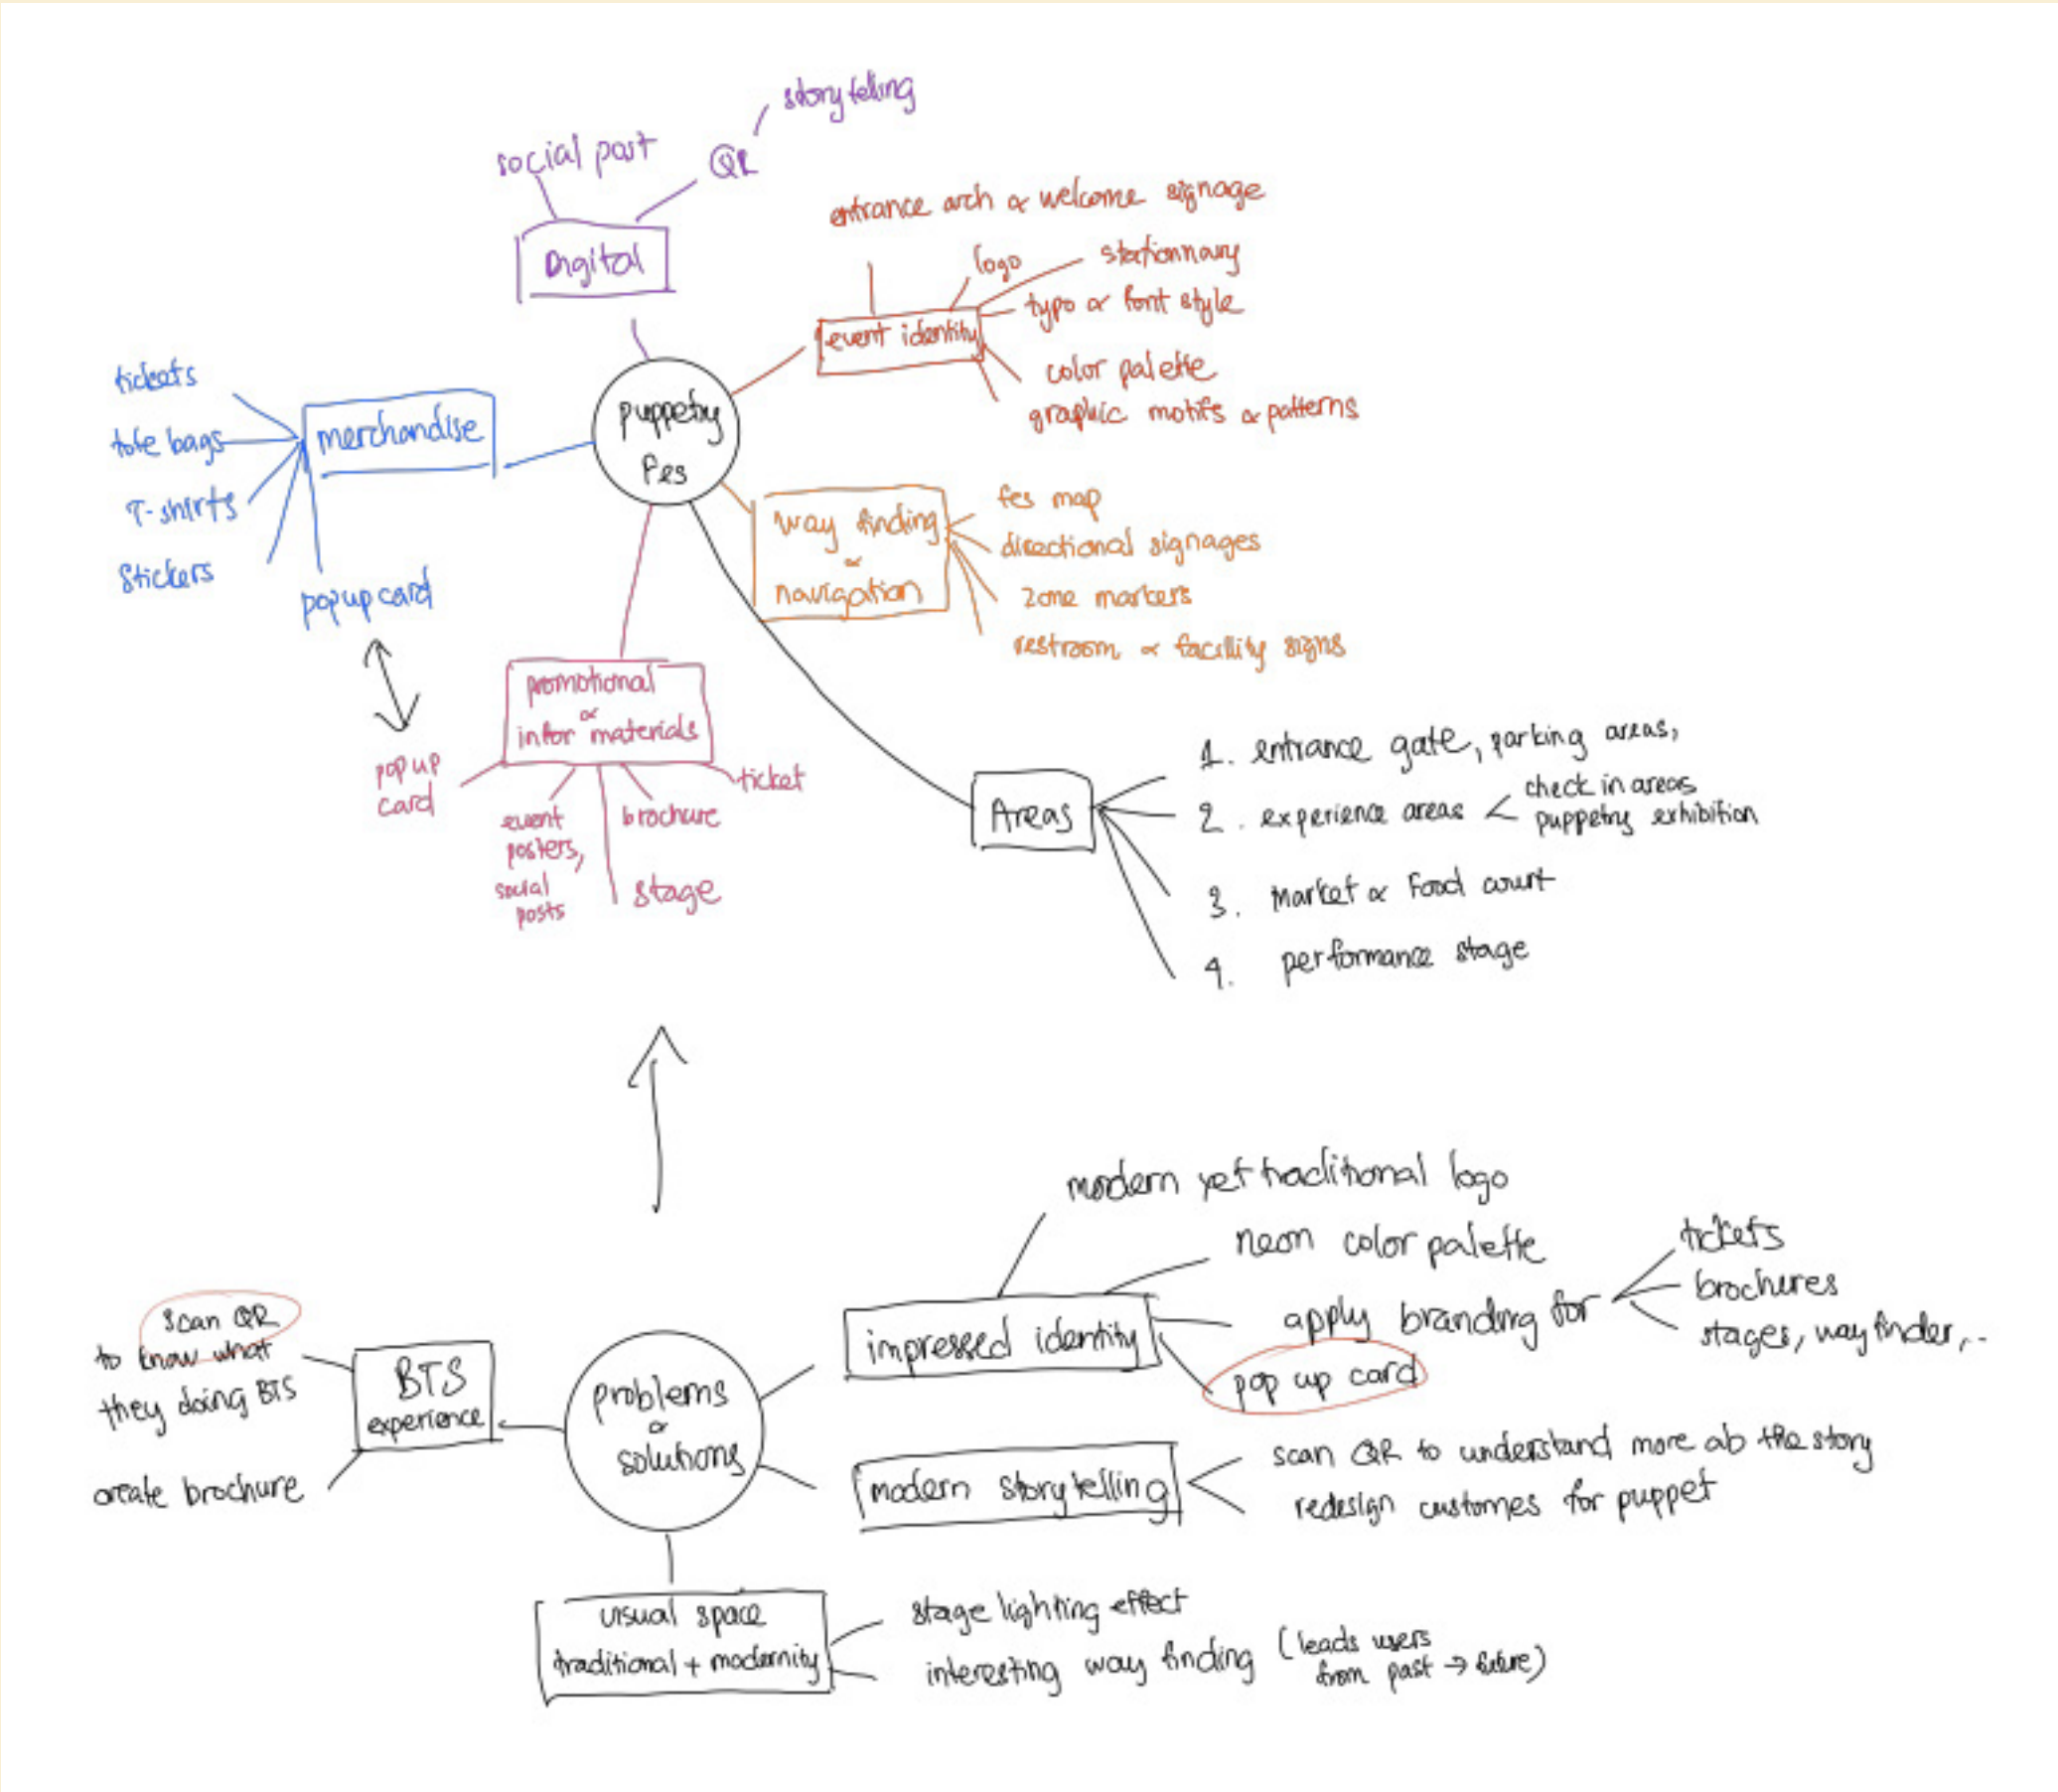 storytelling
social post
QR
Digital
entrance arch & welcome signage
logo
stactionnary
typo & font style
event identity
color palette
graphic motifs & patterns
puppetry
Fes
tickets
tote bags
T-shirts
Stickers
popup card
merchandise
way finding
&
navigation
fes map
directional signages
zone markers
restroom & facility signs
promotional
&
infor materials
pop up
card
event
posters,
social
posts
stage
brochure
ticket
Areas
1. entrance gate, parking areas,
2. experience areas < check in areas
puppetry exhibition
3. Market & Food court
4. performance stage
modern yet traditional logo
neon color palette
apply branding for
tickets
brochures
stages, way finder,..
impressed identity
pop up card
scan QR
to know what
they doing BTS
create brochure
BTS
experience
problems
&
solutions
modern storytelling
scan QR to understand more ab the story
redesign customes for puppet
visual space
traditional + modernity
stage lighting effect
interesting way finding (leads users
from past → future)